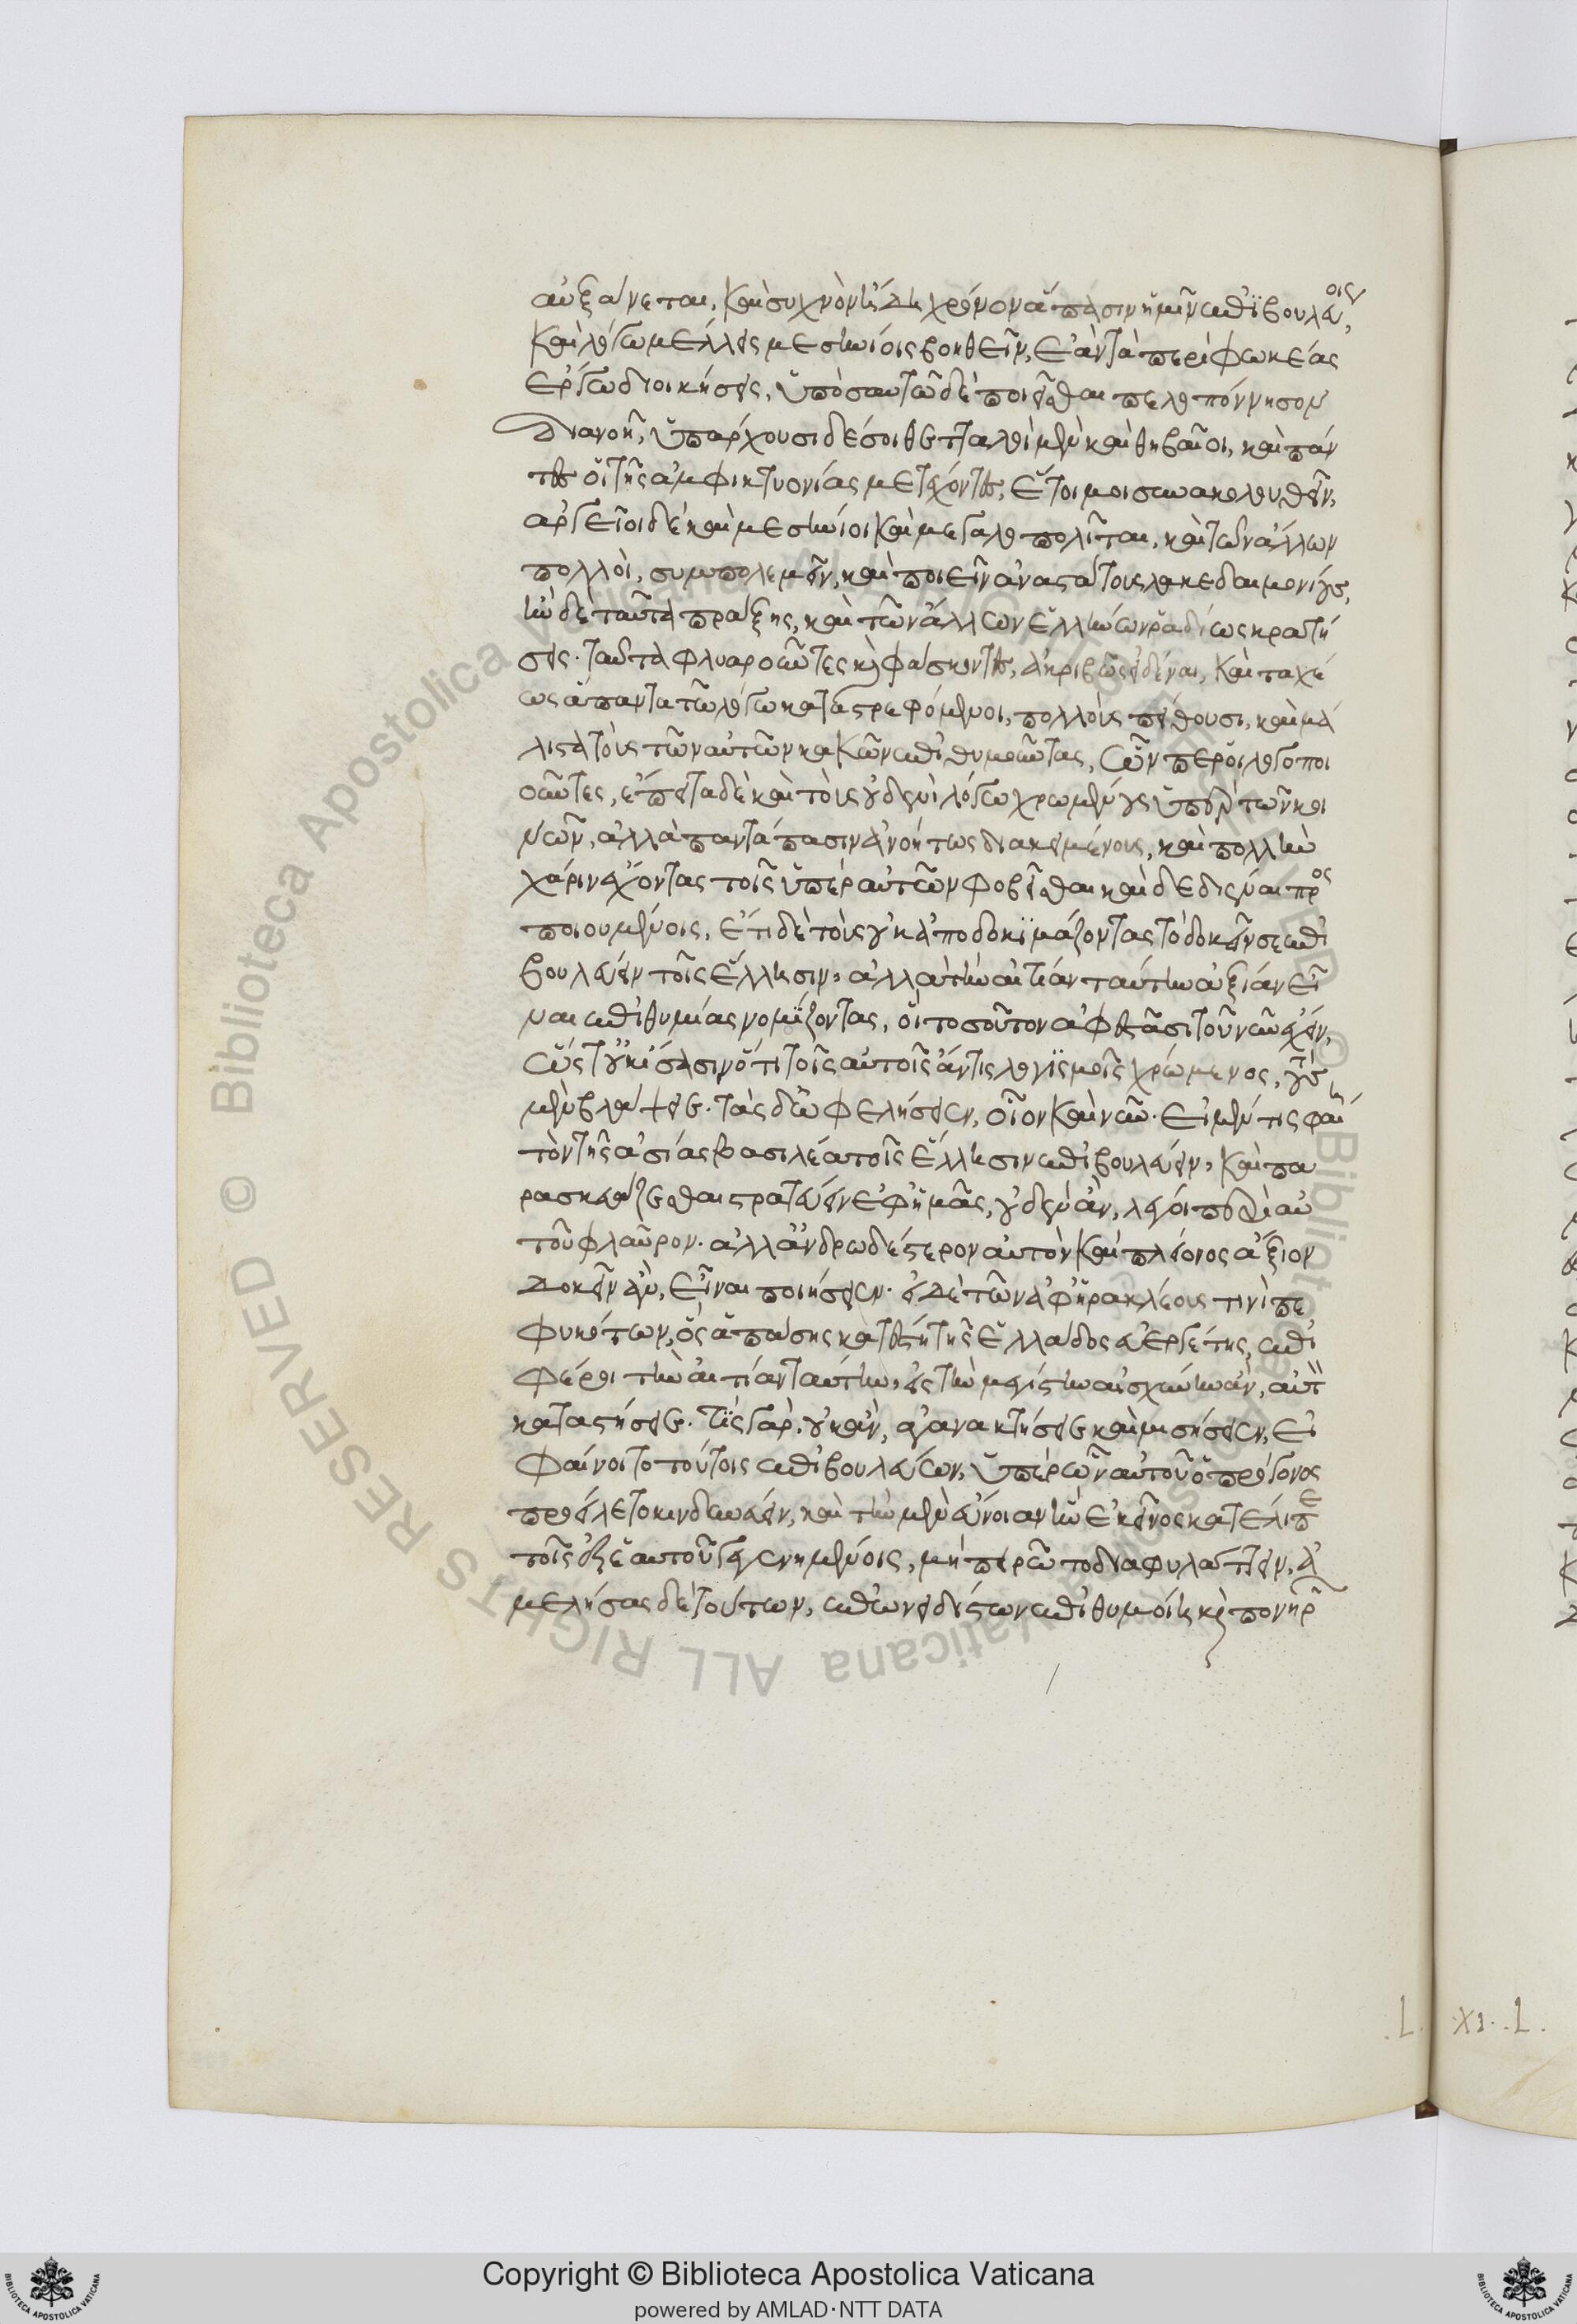 αὐξάνεται, καὶ συχνὸν ἤδη χρόνον ἅπασιν ἡμῖν ἐπϊβουλεύοις,
καὶ λόγω μέλλεις μεσηνίοις βοηθεῖν, ἐὰν τὰ περὶ φωκέας
ἔργω διοικήσης, ὑπὸ σαυτῶ δὲ ποιεῖσθαι πελοπόννησον
διανοῆ, ὑπάρχουσι δέ σοι θετταλοὶ μὲν καὶ θηβαῖοι, καὶ πάν
τες οἱ τῆς ἀμφικτυονίας μετέχοντες, ἕτοιμοι συνακολουθεῖν,
ἀργεῖοι δὲ καὶ μεσήνιοι καὶ μεγαλοπολῖται, καὶ τῶν ἄλλων
πολλοὶ, συμπολεμεῖν, καὶ ποιεῖν ἀναστάτους λακεδαιμονίους,
ἢν δὲ ταῦτα πράξης, καὶ τῶν ἄλλων ἑλλήνων ῥαδίως κρατή
σεις. ταῦτα φλυαροῦντες καὶ φάσκοντες, ἀκριβῶς εἰδέναι, καὶ ταχέ
ως ἅπαντα τῶ λόγω καταστρεφόμενοι, πολλοὺς πείθουσι, καὶ μά
λιστα τοὺς τῶν αὐτῶν κακῶν ἐπιθυμοῦντας, ὧνπερ οἱ λογοποι
οῦντες, ἔπειτα δὲ καὶ τοὺς οὐδενὶ λόγω χρωμένους ὑπὲρ τῶν κοι
νῶν, ἀλλὰ παντάπασιν ἀνοήτως διακειμένους, καὶ πολλὴν
χάριν ἔχοντας τοῖς ὑπὲρ αὐτῶν φοβεῖσθαι καὶ δεδιέναι προς
ποιουμένοις, ἔτι δὲ τοὺς οὐκ ἀποδοκϊμάζοντας τὸ δοκεῖν σε ἐπι
βουλεύειν τοῖς ἕλλησιν, ἀλλὰ τὴν αἰτίαν ταύτην ἀξίαν εἶ
ναι ἐπιθυμίας νομϊζοντας, οἳ τοσοῦτον ἀφεστᾶσι τοῦ νοῦν ἔχειν,
ὥστ' οὐκ ἴσασιν ὅτι τοῖς αὐτοῖς ἄν τις λογϊσμοῖς χρώμενος, τοὺς
μὲν βλάψει. τὰς δ' ὠφελήσειεν, οἷον καὶ νῦν. εἰ μέν τις φαίη
τὸν τῆς ἀσίας βασιλέα τοῖς ἕλλησιν ἐπιβουλεύειν, καὶ πα
ρασκευάζεσθαι στρατεύειν ἐφ' ἡμᾶς, οὐδὲν ἂν, λέγοι περὶ αὐ
τοῦ φλαῦρον. ἀλλ' ἀνδρωδέστερον αὐτὸν καὶ πλέονος ἄξιον
δοκεῖν ἂν, εἶναι ποιήσειεν. εἰ δὲ τῶν ἀφ' ἡρακλέους τινὶ πε
φυκότων, ὃς ἁπάσης κατέστη τῆς ἑλλάδος εὐεργέτης, ἐπι
φέροι τὴν αἰτίαν ταύτην, εἰς τὴν μεγίστην αἰσχύνην ἂν, αὐτὸν
καταστήσει. τίς γὰρ, οὐκ ἂν, ἀγανακτήσει καὶ μισήσειεν, εἰ
φαίνοιτο τούτοις ἐπιβουλεύων, ὑπὲρ ὧν αὐτοῦ ὁ πρόγονος
προείλετο κινδυνεύειν, καὶ τὴν μὲν εὔνοιαν ἣν ἐκεῖνος κατέλιπε
τοῖς ἐξ ἑαυτοῦ γεγενημένοις, μὴ πειρῶτο διαφυλάττειν, ἀ
μελήσας δὲ τούτων, ἐπονειδίστων ἐπιθυμοίη καὶ πονηρῶν
Copyright © Biblioteca Apostolica Vaticana
powered by AMLAD·NTT DATA